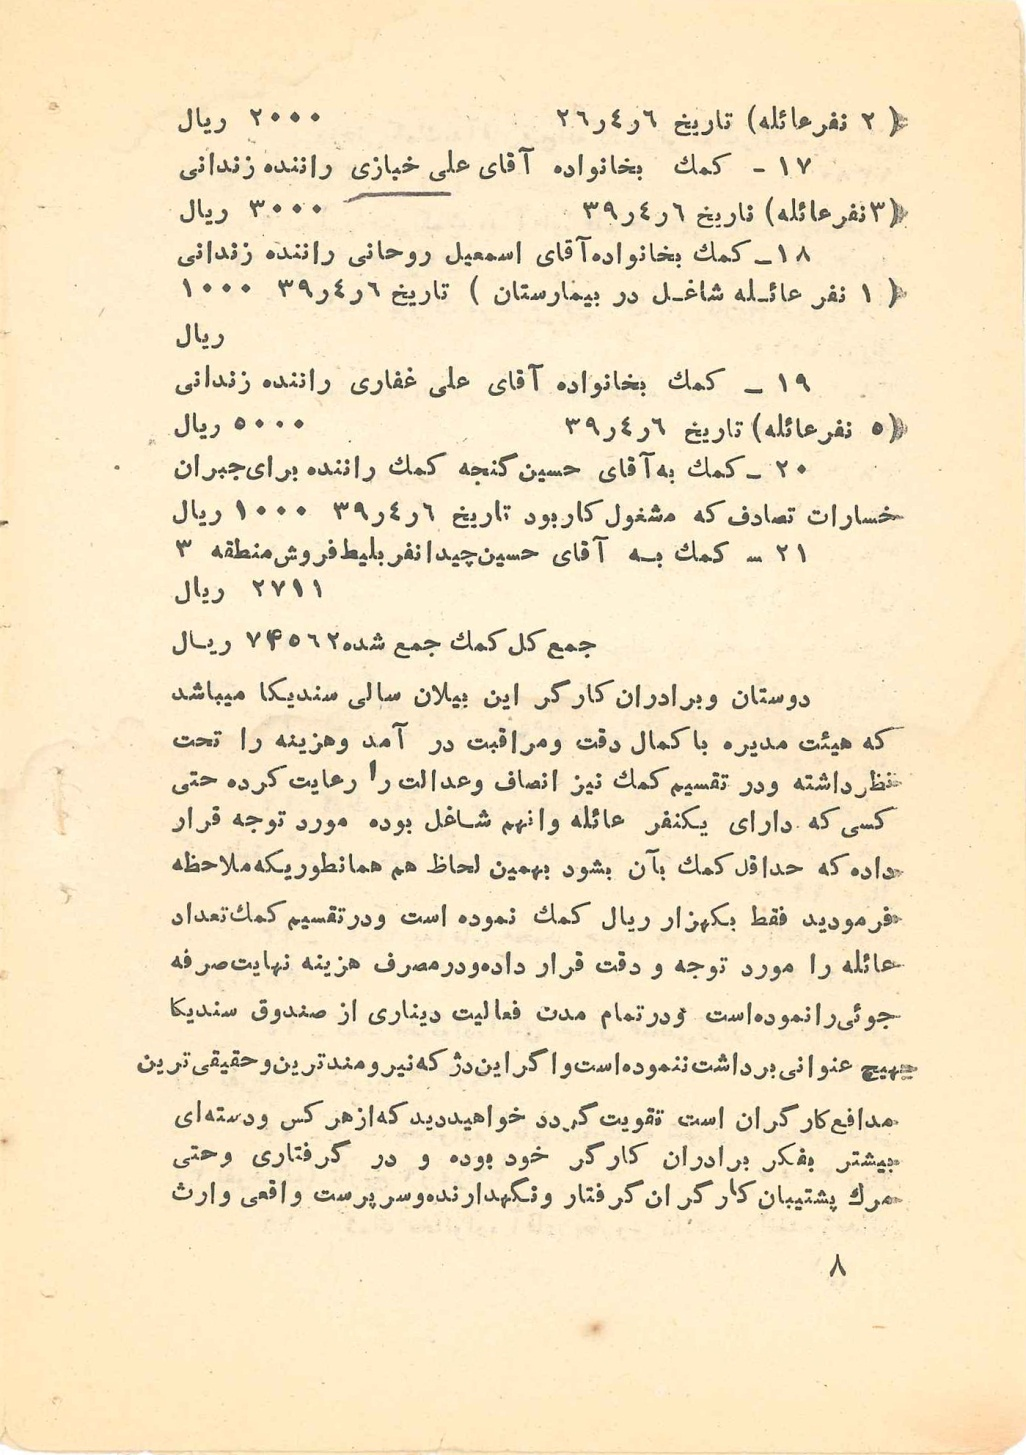 ( ۲ نفرعائله) تاریخ ٦ر٤ر۲٦ ۲۰۰۰ ریال
۱۷ - کمك بخانواده آقای علی خبازی راننده زندانی
(۳ نفرعائله) تاریخ ٦ر٤ر۳۹ ۳۰۰۰ ریال
۱۸_ کمك بخانواده آقای اسمعیل روحانی راننده زندانی
( ۱ نفر عائـله شاغـل در بیمارستان ) تاریخ ٦ر٤ر۳۹ ۱۰۰۰
ریال
۱۹ _ کمك بخانواده آقای علی غفاری راننده زندانی
(٥ نفرعائله) تاریخ ٦ر٤ر۳۹ ٥۰۰۰ ریال
۲۰ _ کمك به آقای حسین گنجه کمك راننده برای جبران
خسارات تصادف که مشغول کار بود تاریخ ٦ر٤ر۳۹ ۱۰۰۰ ریال
۲۱ - کمك بـه آقای حسین چیدانفر بلیط فروش منطقه ۳
۲۷۱۱ ریال
جمع کل کمك جمع شده ۷۴٥٦۲ ریـال
دوستان وبرادران کارگر این بیلان سالی سندیکا میباشد
که هیئت مدیره با کمال دقت ومراقبت در آمد وهزینه را تحت
نظر داشته ودر تقسیم کمك نیز انصاف وعدالت را رعایت کرده حتی
کسی که دارای یکنفر عائله وانهم شـاغل بوده مورد توجه قرار
داده که حداقل کمك بآن بشود بهمین لحاظ هم همانطوریکه ملاحظه
فرمودید فقط بکهزار ریال کمك نموده است ودرتقسیم کمك تعداد
عائله را مورد توجه و دقت قرار داده ودرمصرف هزینه نهایت صرفه
جوئی را نموده است ودرتمام مدت فعالیت دیناری از صندوق سندیکا
بهیچ عنوانی برداشت ننموده است واگر این دژ که نیرومندترین وحقیقی ترین
مدافع کارگران است تقویت گردد خواهیددید که از هر کس ودسته ای
بیشتر بفکر برادران کارگر خود بوده و در گرفتاری وحتی
مرك پشتیبان کارگران گرفتار ونگهدارنده وسرپرست واقعی وارث
۸